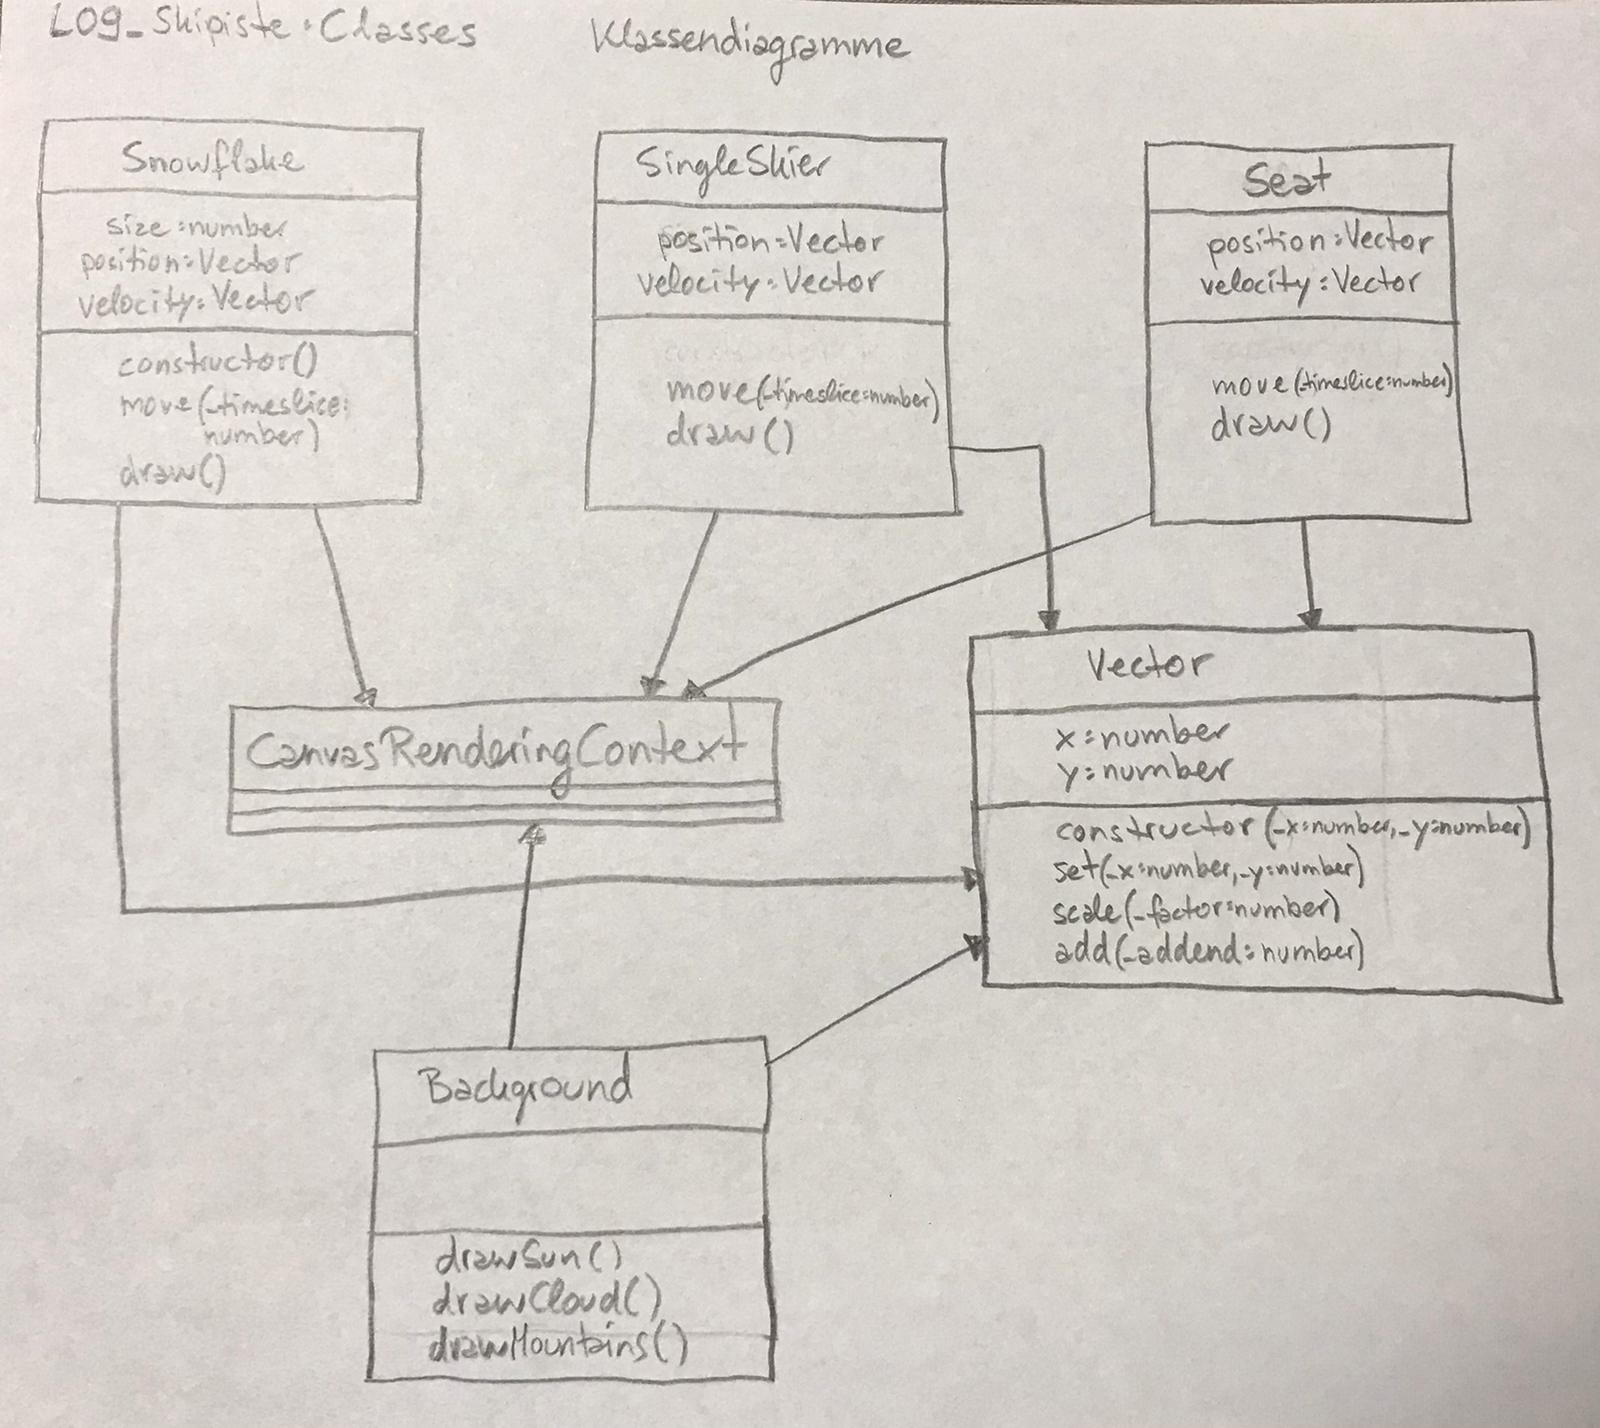 L09_Skipiste: Classes
Klassendiagramme
Snowflake
size: number
position: Vector
velocity: Vector
constructor()
move(_timeslice:
number)
draw()
SingleSkier
position: Vector
velocity: Vector
move(_timeslice: number)
draw()
Seat
position: Vector
velocity: Vector
move(_timeslice: number)
draw()
CanvasRenderingContext
Vector
x: number
y: number
constructor(_x: number, _y: number)
set(_x: number, _y: number)
scale(_factor: number)
add(_addend: number)
Background
drawSun()
drawCloud()
drawMountains()